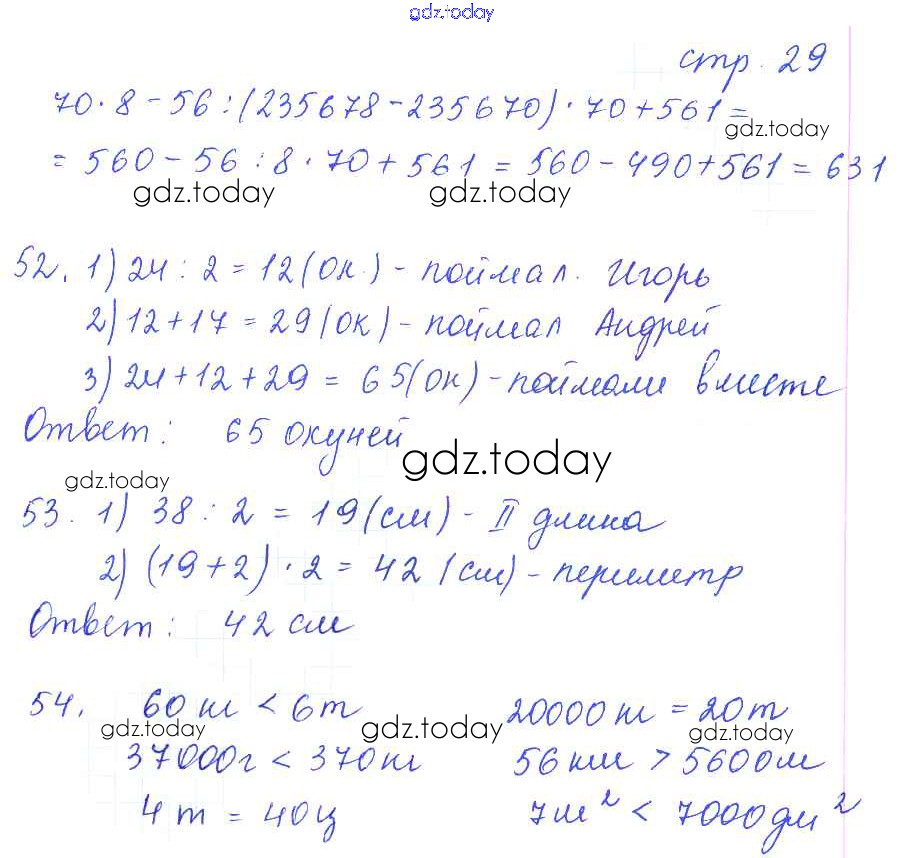 gdz.today
стр. 29
70·8-56:(235678-235670)·70+561=
gdz.today
=560-56:8·70+561=560-490+561=631
gdz.today gdz.today
52. 1) 24:2=12(ок.)-поймал. Игорь
2) 12+17=29(ок)-поймал Андрей
3) 24+12+29=65(ок)-поймали вместе
Ответ: 65 окуней
gdz.today
gdz.today
53. 1) 38:2=19(см)-II длина
2) (19+2)·2=42(см)-периметр
Ответ: 42 см
54. 60 кг < 6т 20000кг = 20т
gdz.today gdz.today gdz.today
37000г < 370кг 56км > 5600м
4т = 40ц 7м² < 7000дм²